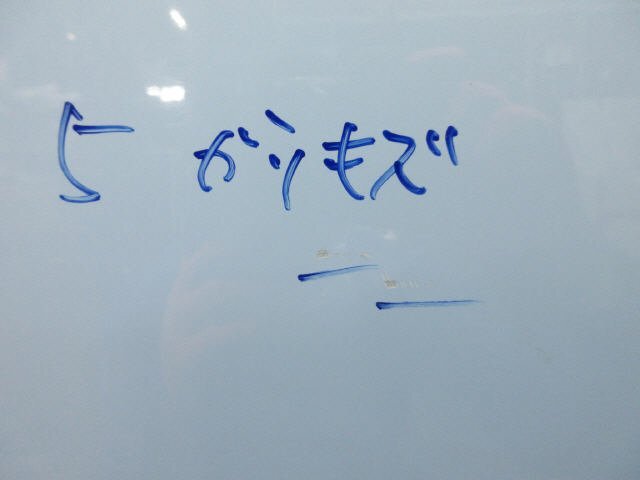 5 がうもズ